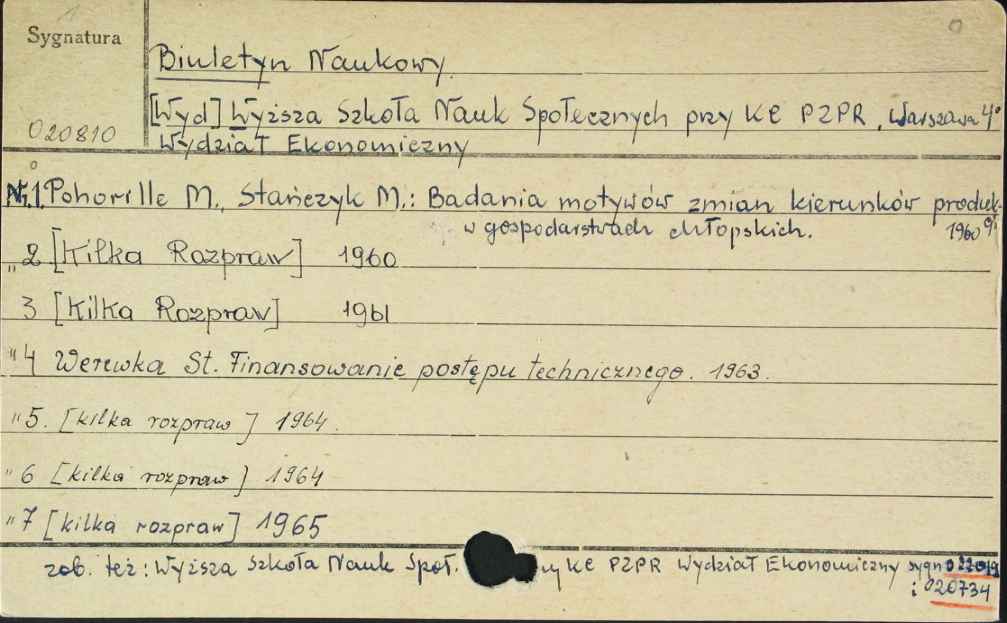 Sygnatura
Biuletyn Naukowy.
[Wyd] Wyższa Szkoła Nauk Społecznych przy KC PZPR, Warszawa 4°
020810
Wydział Ekonomiczny
Nr.1. Pohorille M., Stańczyk M.: Badania motywów zmian kierunków produk-
w gospodarstwach chłopskich. 1960
" 2 [Kilka Rozpraw] 1960
3 [Kilka Rozpraw] 1961
" 4 Werewka St. Finansowanie postępu technicznego. 1963.
" 5. [kilka rozpraw] 1964.
" 6 [kilka rozpraw] 1964
" 7 [kilka rozpraw] 1965
zob. też: Wyższa Szkoła Nauk Społ. KC PZPR Wydział Ekonomiczny sygn
i 020734